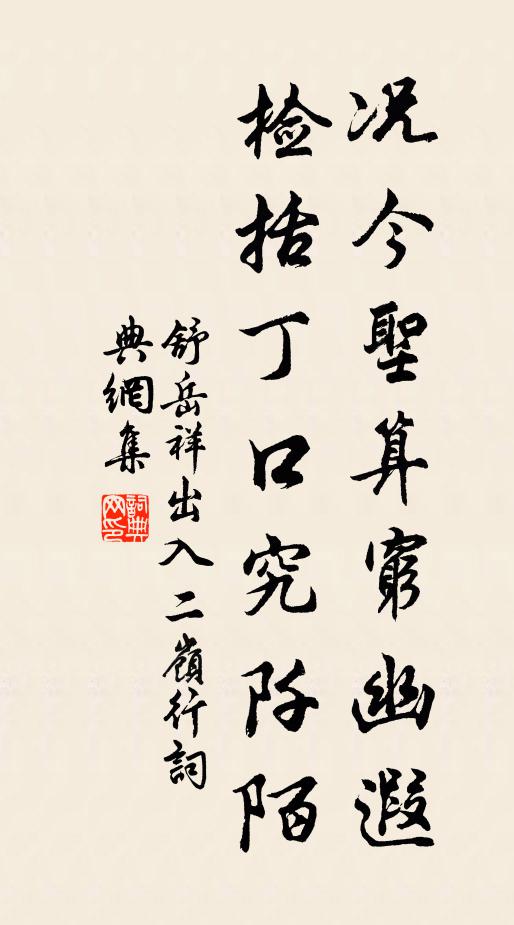 况今聖算窮幽遐
檢括丁口究阡陌
舒岳祥出入二嶺行詞
典網集
詞典網印